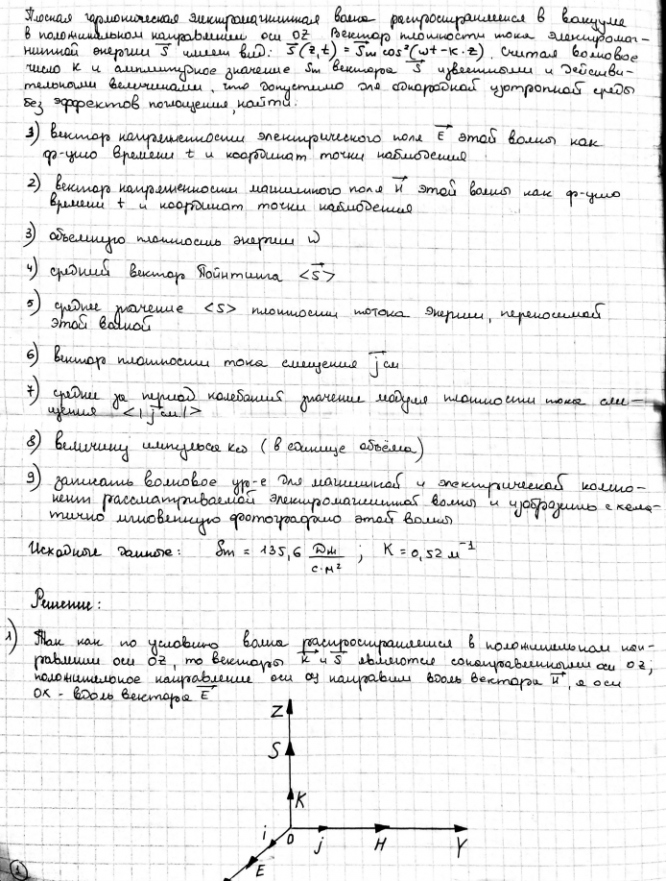 Плоская гармоническая электромагнитная волна распространяется в вакууме
в положительном направлении оси OZ. Вектор плотности тока электромаг-
нитной энергии S имеет вид: S(z,t) = Sm cos²(ωt - k·z). Считая волновое
число k и амплитудное значение Sm вектора S известными и действи-
тельными величинами, что допустимо для однородной изотропной среды
без эффектов поглощения, найти:
1) вектор напряженности электрического поля E этой волны как
ф-цию времени t и координат точки наблюдения
2) вектор напряженности магнитного поля H этой волны как ф-цию
времени t и координат точки наблюдения
3) объемную плотность энергии ω
4) средний вектор Пойнтинга <S>
5) среднее значение <S> плотности потока энергии, переносимой
этой волной
6) вектор плотности тока смещения jсм
7) среднее за период колебаний значение модуля плотности тока сме-
щения <|jсм|>
8) величину импульса Kω (в единице объёма)
9) записать волновое ур-е для магнитной и электрической компо-
нент рассматриваемой электромагнитной волны и изобразить схема-
тично мгновенную фотографию этой волны
Исходные данные: Sm = 135,6 Дж/с·м² ; K = 0,52 м⁻¹
Решение:
1) Так как по условию волна распространяется в положительном нап-
равлении оси OZ, то векторы K и S являются сонаправленными оси OZ;
положительное направление оси OY направим вдоль вектора H, а оси
OX - вдоль вектора E
Z
S
K
i O j H Y
E
1